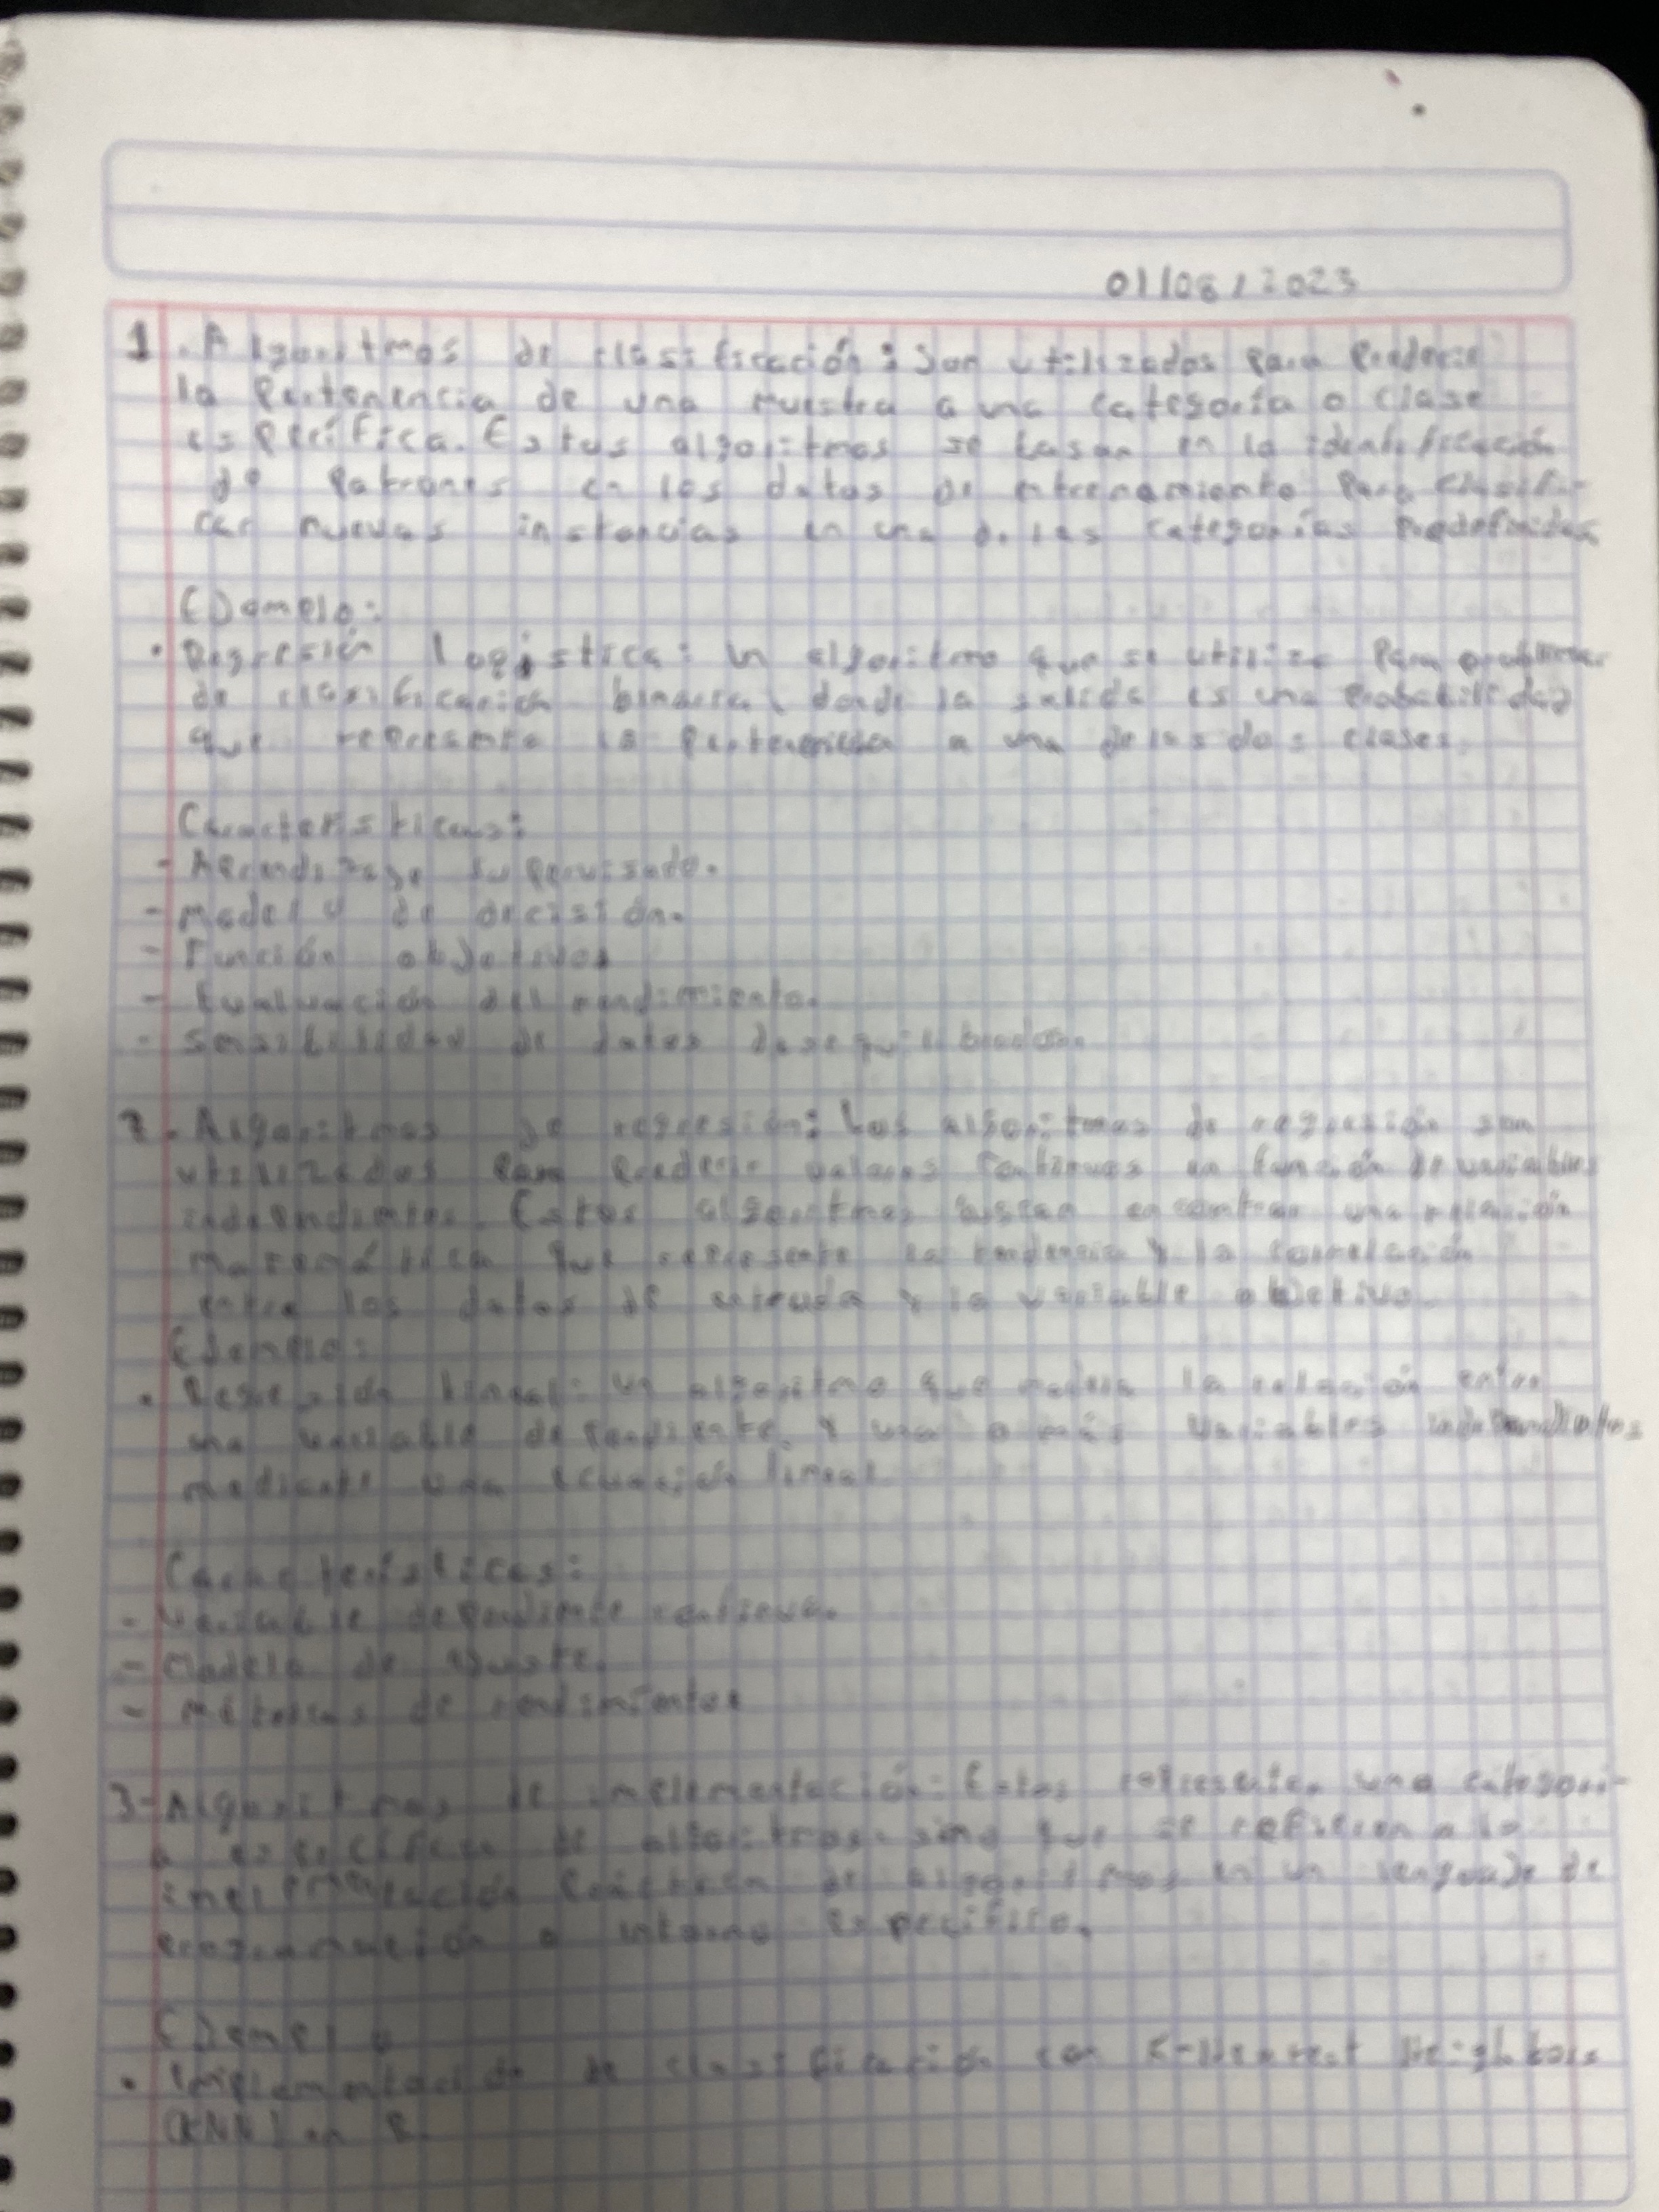 01/08/2023
1. Algoritmos de clasificación: Son utilizados para predecir
la pertenencia de una muestra a una categoría o clase
específica. Estos algoritmos se basan en la identificación
de patrones en los datos de entrenamiento para clasifi-
car nuevas instancias en una de las categorías predefinidas
Ejemplo:
• Regresión logística: Un algoritmo que se utiliza para problemas
de clasificación binaria, donde la salida es una probabilidad
que representa la pertenencia a una de las dos clases.
Características:
- Aprendizaje supervisado.
- Modelo de decisión.
- Función objetivos
- Evaluación del rendimiento.
- Sensibilidad de datos desequilibrados.
2. Algoritmos de regresión: Los algoritmos de regresión son
utilizados para predecir valores continuos en función de variables
independientes. Estos algoritmos buscan encontrar una relación
matemática que represente la tendencia y la correlación
entre los datos de entrada y la variable objetivo.
Ejemplo:
• Regresión lineal: Un algoritmo que modela la relación entre
una variable dependiente y una o más variables independientes
mediante una ecuación lineal
Características:
- Variable dependiente continua.
- Modelo de ajuste.
- Métricas de rendimientos
3- Algoritmos de implementación: Estos representan una categori-
a específica de algoritmos sino que se refieren a la
implementación práctica de algoritmos en un lenguaje de
programación o entorno específico.
Ejemplo
• Implementación de clasificación con K-Nearest Neighbors
(KNN) en R.